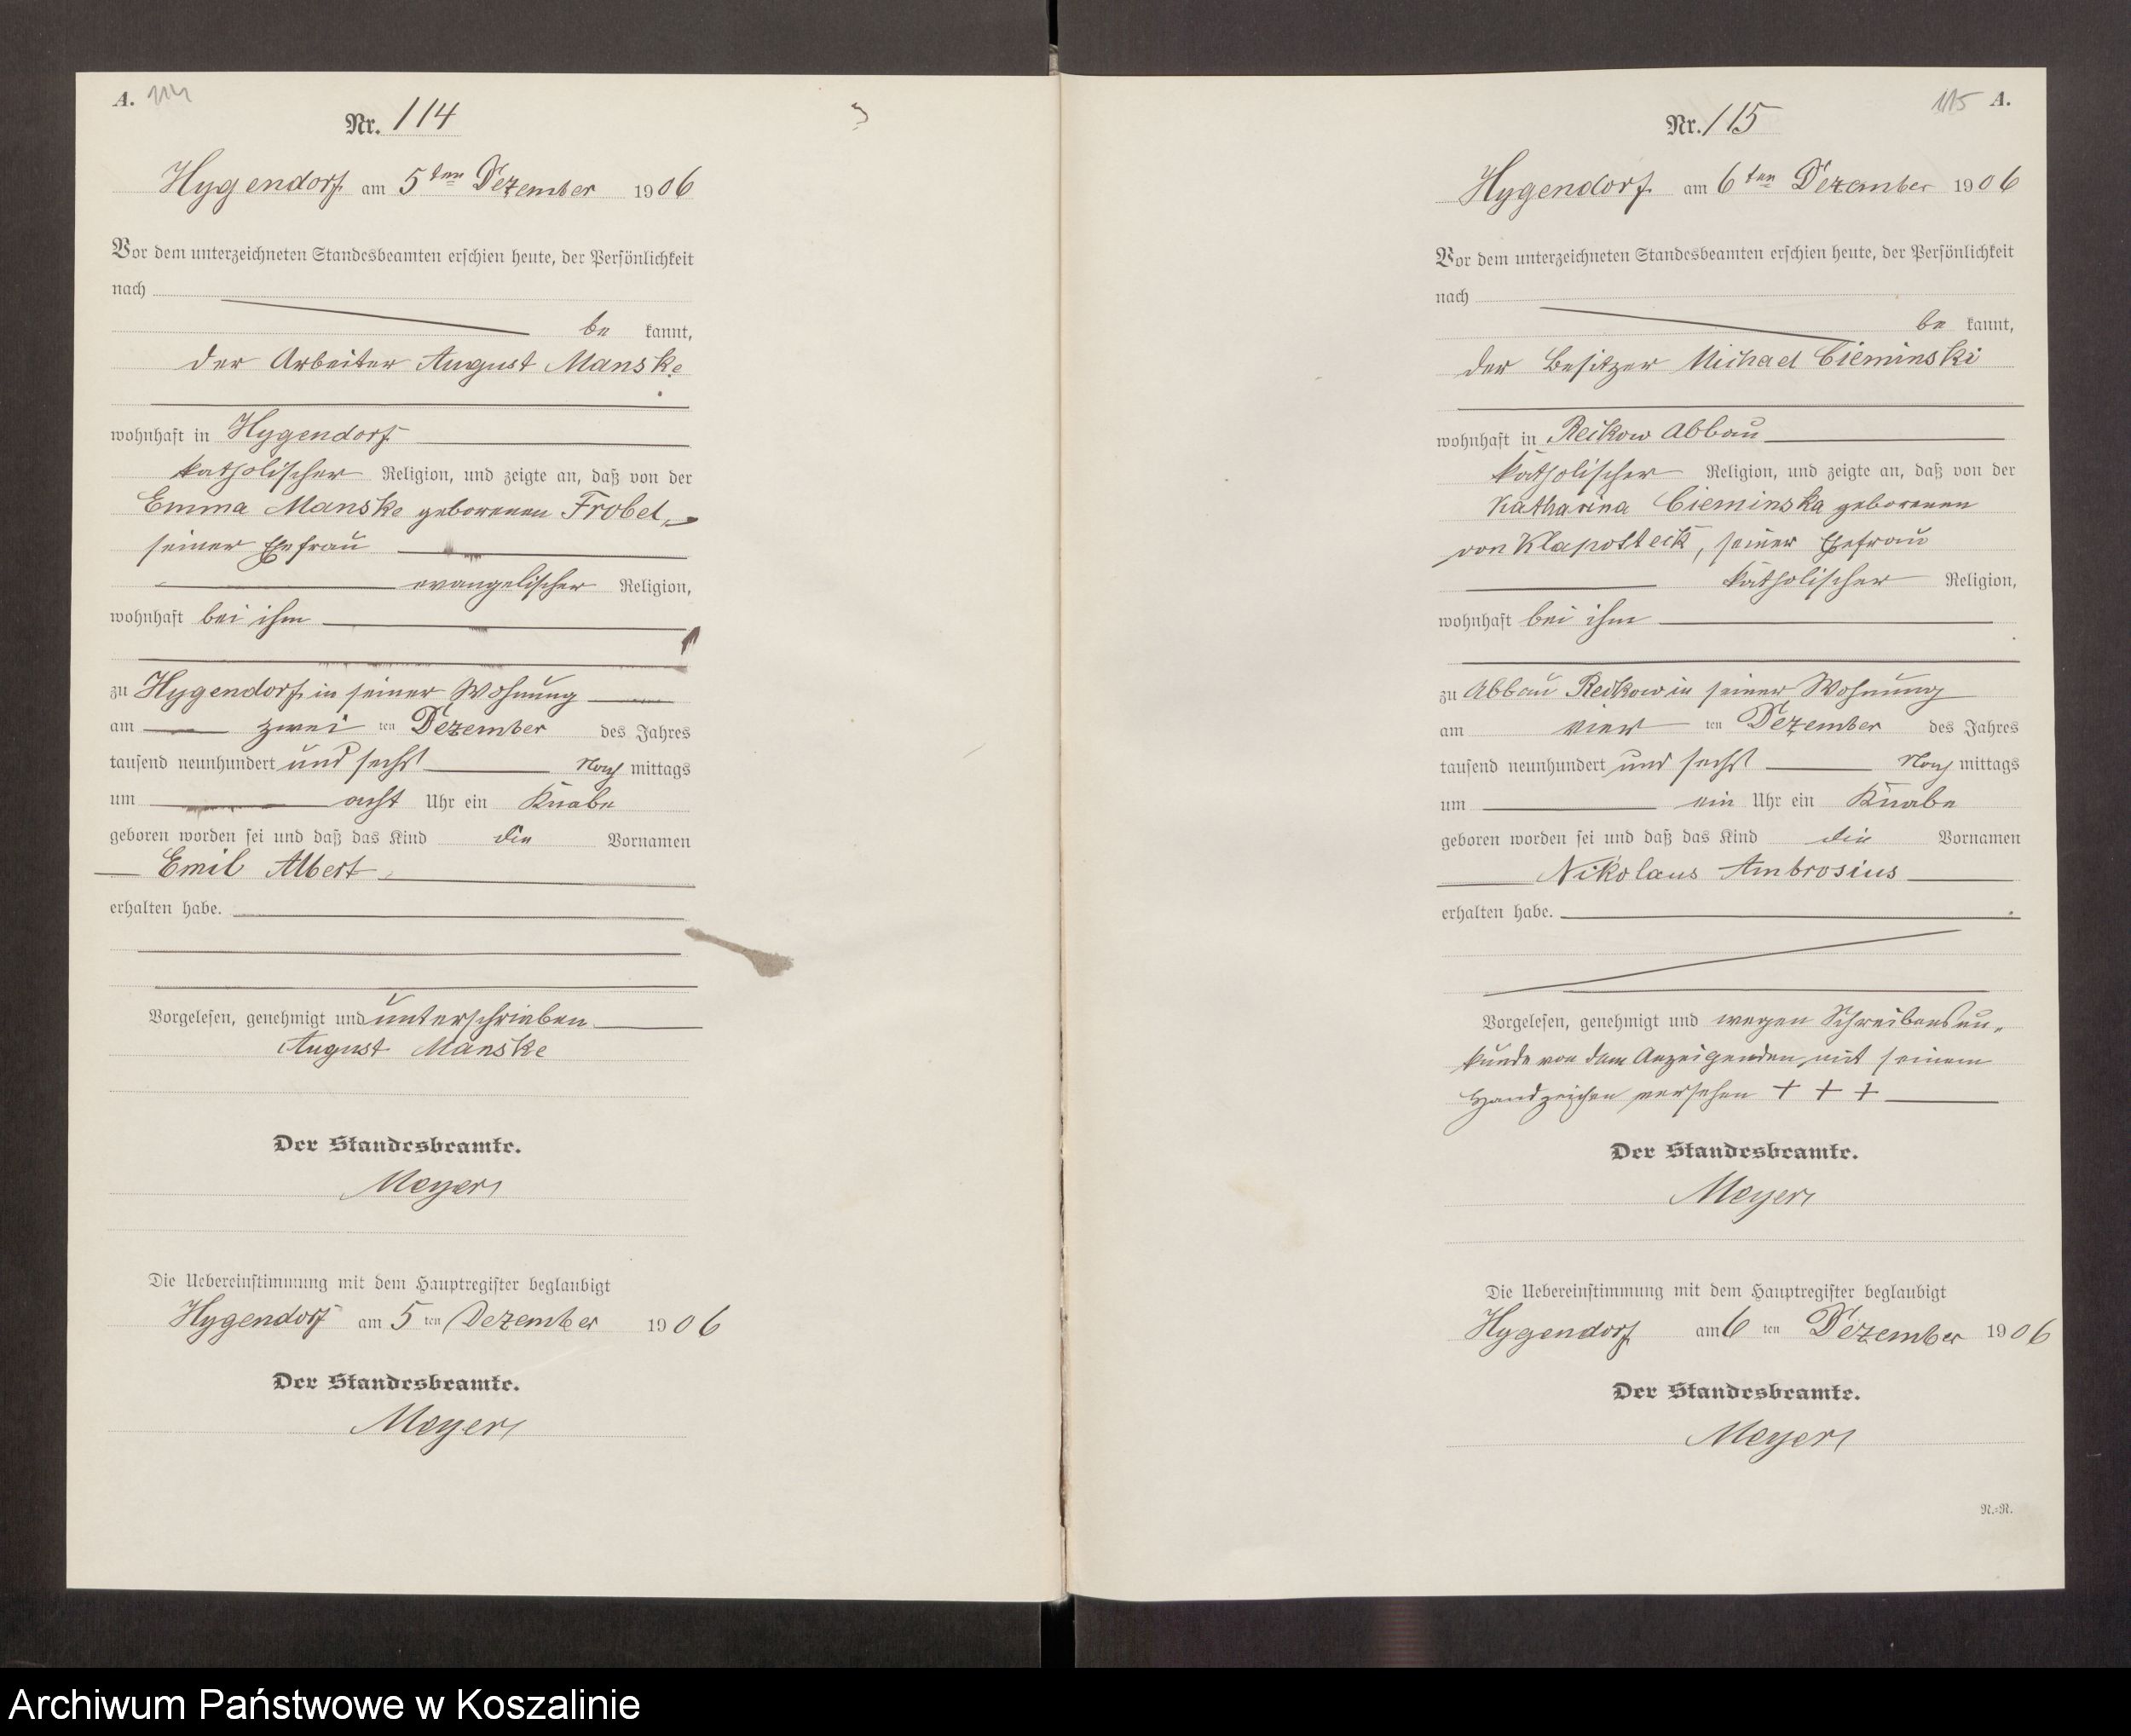 A. 114
Nr. 114
Hygendorf am 5ten Dezember 1906
Vor dem unterzeichneten Standesbeamten erschien heute, der Persönlichkeit
nach
be kannt,
der Arbeiter August Manske
wohnhaft in Hygendorf
katholischer Religion, und zeigte an, daß von der
Emma Manske geborenen Frobel,
seiner Ehefrau
evangelischer Religion,
wohnhaft bei ihm
zu Hygendorf in seiner Wohnung
am zwei ten Dezember des Jahres
tausend neunhundert und sechs Nach mittags
um acht Uhr ein Knabe
geboren worden sei und daß das Kind die Vornamen
Emil Albert
erhalten habe.
Vorgelesen, genehmigt und unterschrieben
August Manske
Der Standesbeamte.
Meyer
Die Uebereinstimmung mit dem Hauptregister beglaubigt
Hygendorf am 5 ten Dezember 1906
Der Standesbeamte.
Meyer
115 A.
Nr. 115
Hygendorf am 6ten Dezember 1906
Vor dem unterzeichneten Standesbeamten erschien heute, der Persönlichkeit
nach
be kannt,
der Besitzer Michael Cieminski
wohnhaft in Reikow Abbau
katholischer Religion, und zeigte an, daß von der
Katharina Cieminska geborenen
von Klapotteck, seiner Ehefrau
katholischer Religion,
wohnhaft bei ihm
zu Abbau Reikow in seiner Wohnung
am vier ten Dezember des Jahres
tausend neunhundert und sechs Nach mittags
um ein Uhr ein Knabe
geboren worden sei und daß das Kind die Vornamen
Nikolaus Ambrosius
erhalten habe.
Vorgelesen, genehmigt und wegen Schreibensun-
kunde von dem Anzeigenden mit seinem
Handzeichen versehen + + +
Der Standesbeamte.
Meyer
Die Uebereinstimmung mit dem Hauptregister beglaubigt
Hygendorf am 6 ten Dezember 1906
Der Standesbeamte.
Meyer
N.=R.
Archiwum Państwowe w Koszalinie